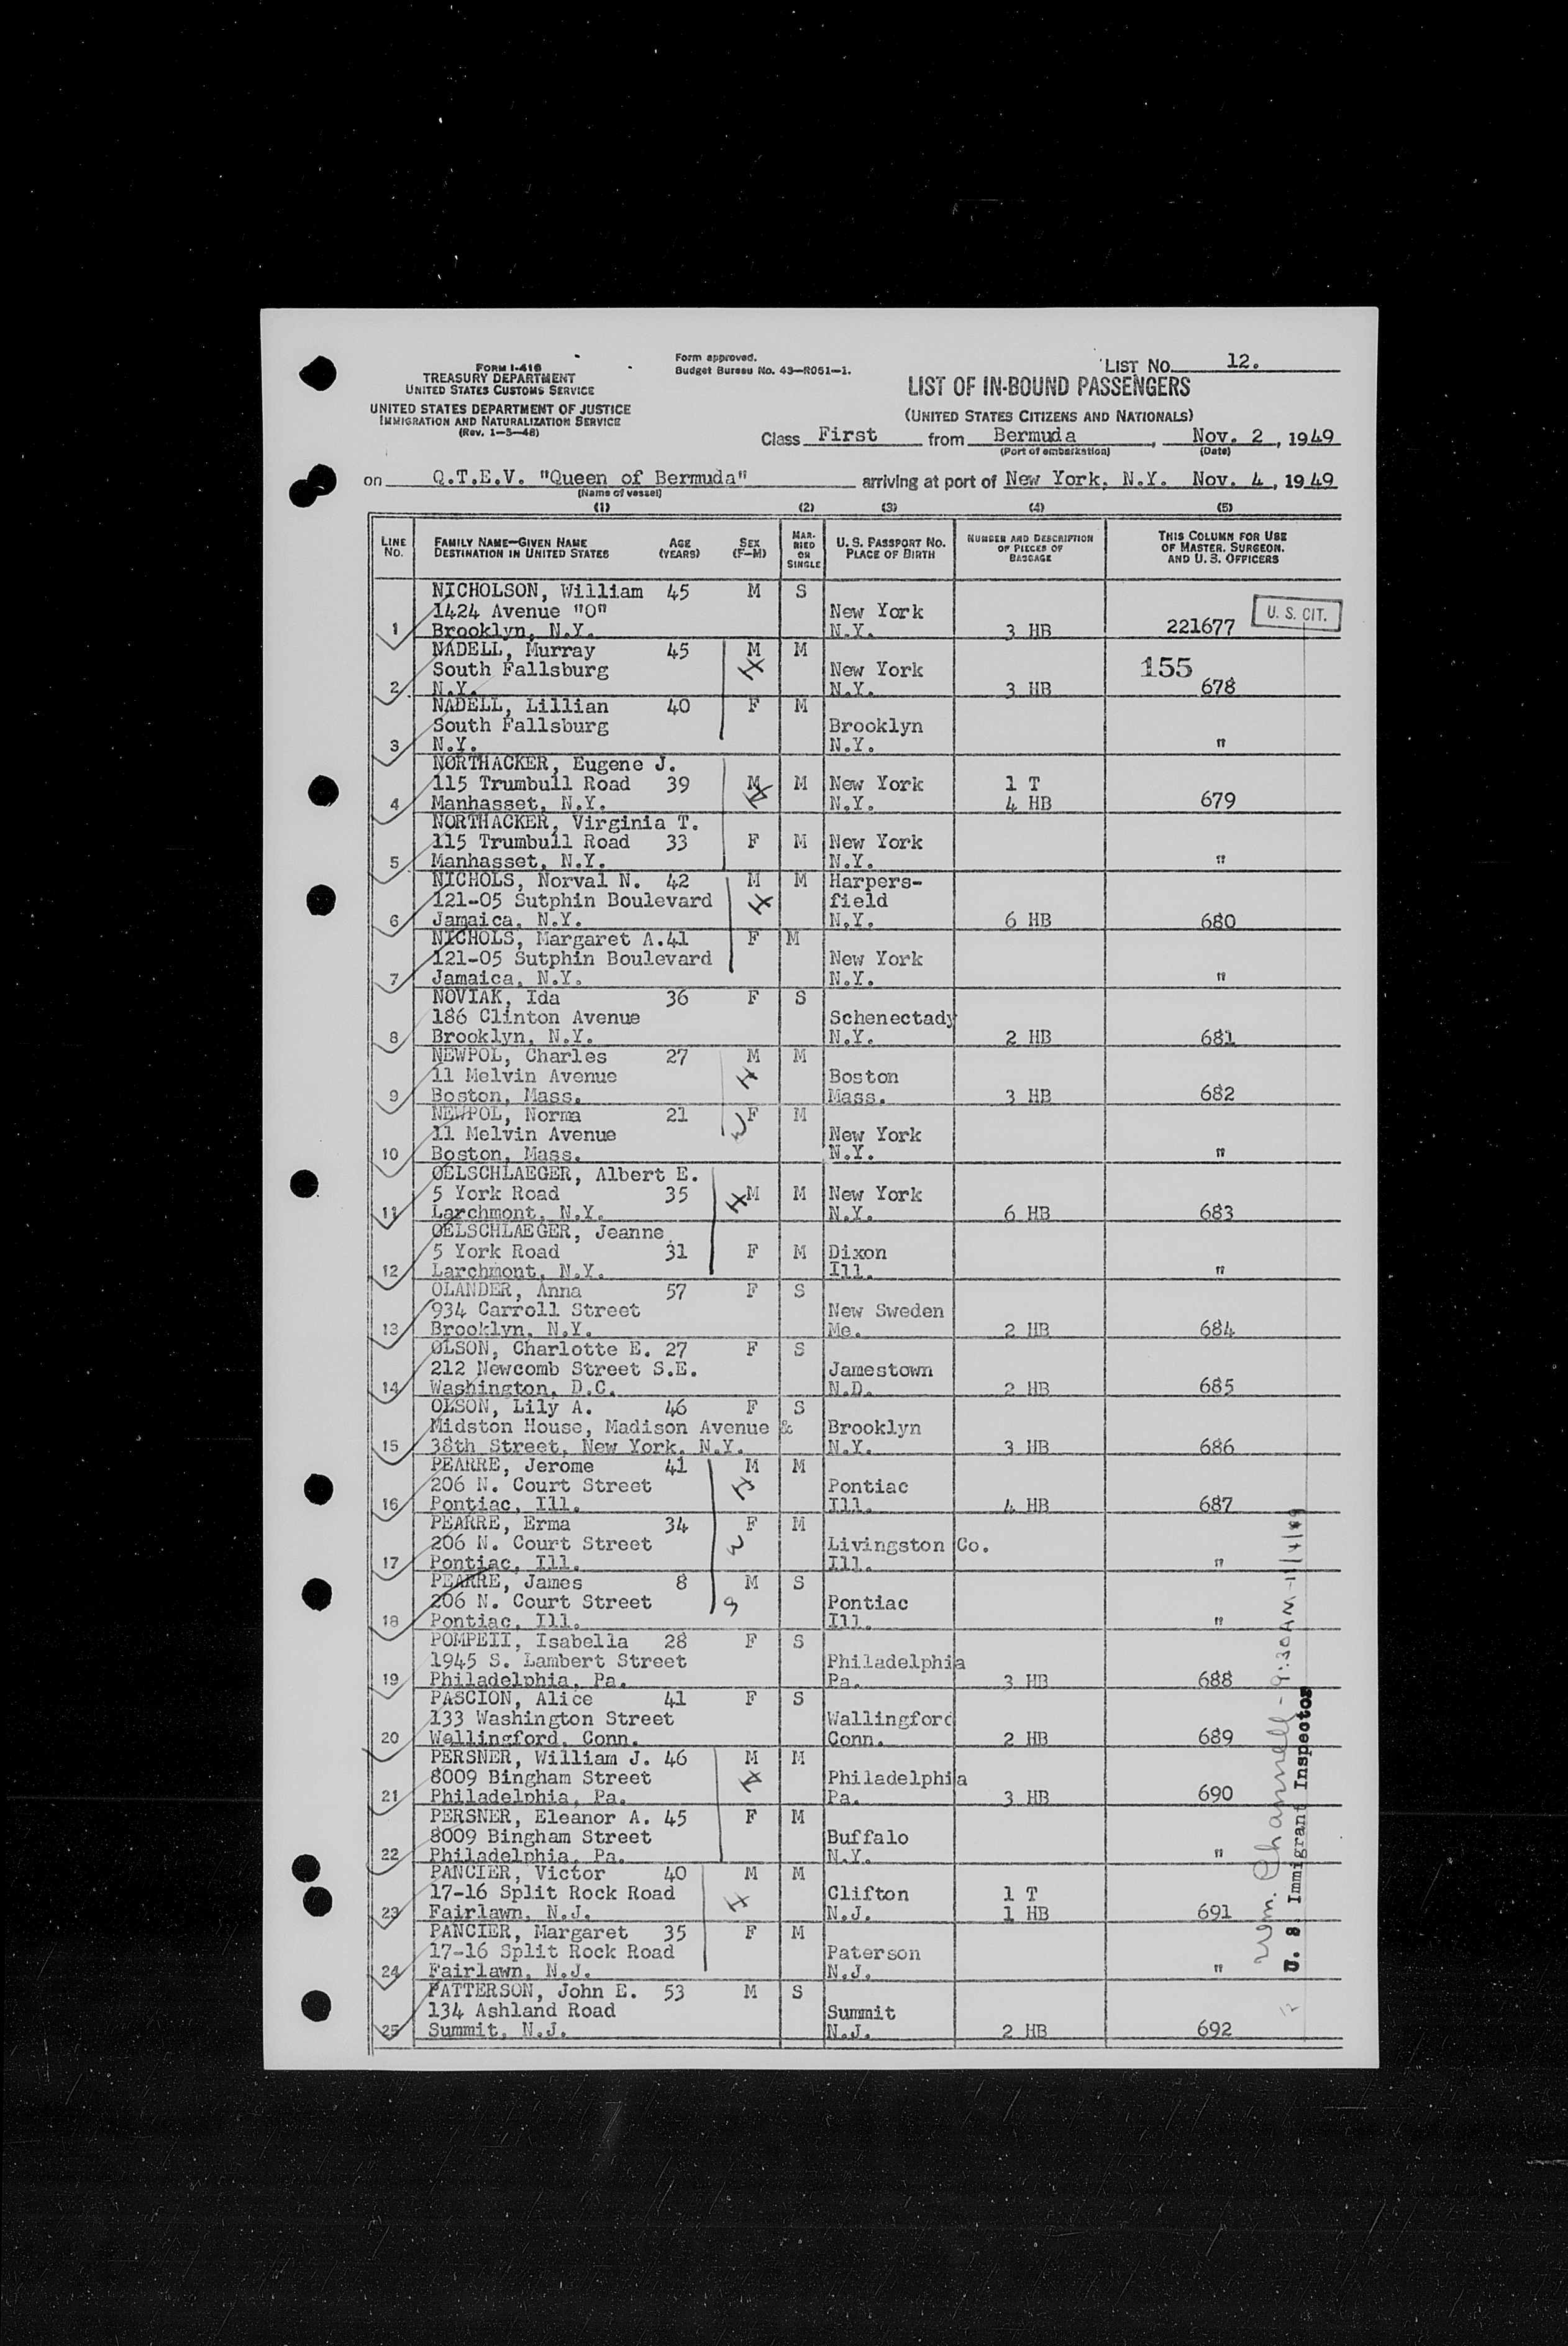 FORM I-416
TREASURY DEPARTMENT
UNITED STATES CUSTOMS SERVICE
UNITED STATES DEPARTMENT OF JUSTICE
IMMIGRATION AND NATURALIZATION SERVICE
(Rev. 1-5-48)
Form approved.
Budget Bureau No. 43-R051-1.
LIST No. 12.
LIST OF IN-BOUND PASSENGERS
(UNITED STATES CITIZENS AND NATIONALS)
Class First from Bermuda, Nov. 2, 1949
(Port of embarkation) (Date)
on Q.T.E.V. "Queen of Bermuda" arriving at port of New York, N.Y. Nov. 4, 1949
(Name of vessel)
(1) (2) (3) (4) (5)
LINE No. FAMILY NAME—GIVEN NAME DESTINATION IN UNITED STATES AGE (YEARS) SEX (F-M) MARRIED OR SINGLE U. S. PASSPORT No. PLACE OF BIRTH NUMBER AND DESCRIPTION OF PIECES OF BAGGAGE THIS COLUMN FOR USE OF MASTER, SURGEON, AND U. S. OFFICERS
NICHOLSON, William 45 M S
1424 Avenue "O" New York U. S. CIT.
1 Brooklyn, N.Y. N.Y. 3 HB 221677
NADELL, Murray 45 M M
South Fallsburg New York 155
2 N.Y. N.Y. 3 HB 678
NADELL, Lillian 40 F M
South Fallsburg Brooklyn
3 N.Y. N.Y. "
NORTHACKER, Eugene J.
115 Trumbull Road 39 M M New York 1 T
4 Manhasset, N.Y. N.Y. 4 HB 679
NORTHACKER, Virginia T.
115 Trumbull Road 33 F M New York
5 Manhasset, N.Y. N.Y. "
NICHOLS, Norval N. 42 M M Harpers-
121-05 Sutphin Boulevard field
6 Jamaica, N.Y. N.Y. 6 HB 680
NICHOLS, Margaret A. 41 F M
121-05 Sutphin Boulevard New York
7 Jamaica, N.Y. N.Y. "
NOVIAK, Ida 36 F S
186 Clinton Avenue Schenectady
8 Brooklyn, N.Y. N.Y. 2 HB 681
NEWPOL, Charles 27 M M
11 Melvin Avenue Boston
9 Boston, Mass. Mass. 3 HB 682
NEWPOL, Norma 21 F M
11 Melvin Avenue New York
10 Boston, Mass. N.Y. "
OELSCHLAEGER, Albert E.
5 York Road 35 M M New York
11 Larchmont, N.Y. N.Y. 6 HB 683
OELSCHLAEGER, Jeanne
5 York Road 31 F M Dixon
12 Larchmont, N.Y. Ill. "
OLANDER, Anna 57 F S
934 Carroll Street New Sweden
13 Brooklyn, N.Y. Me. 2 HB 684
OLSON, Charlotte E. 27 F S
212 Newcomb Street S.E. Jamestown
14 Washington, D.C. N.D. 2 HB 685
OLSON, Lily A. 46 F S
Midston House, Madison Avenue & Brooklyn
15 38th Street, New York, N.Y. N.Y. 3 HB 686
PEARRE, Jerome 41 M M
206 N. Court Street Pontiac
16 Pontiac, Ill. Ill. 4 HB 687
PEARRE, Erma 34 F M
206 N. Court Street Livingston Co.
17 Pontiac, Ill. Ill. "
PEARRE, James 8 M S
206 N. Court Street Pontiac
18 Pontiac, Ill. Ill. "
POMPEII, Isabella 28 F S
1945 S. Lambert Street Philadelphia
19 Philadelphia, Pa. Pa. 3 HB 688
PASCION, Alice 41 F S
133 Washington Street Wallingford
20 Wallingford, Conn. Conn. 2 HB 689
PERSNER, William J. 46 M M
8009 Bingham Street Philadelphia
21 Philadelphia, Pa. Pa. 3 HB 690
PERSNER, Eleanor A. 45 F M
8009 Bingham Street Buffalo
22 Philadelphia, Pa. N.Y. "
PANCIER, Victor 40 M M
17-16 Split Rock Road Clifton 1 T
23 Fairlawn, N.J. N.J. 1 HB 691
PANCIER, Margaret 35 F M
17-16 Split Rock Road Paterson
24 Fairlawn, N.J. N.J. "
PATTERSON, John E. 53 M S
134 Ashland Road Summit
25 Summit, N.J. N.J. 2 HB 692
Wm. Channell - 9:30 AM - 11/4/49
U. S. Immigrant Inspector